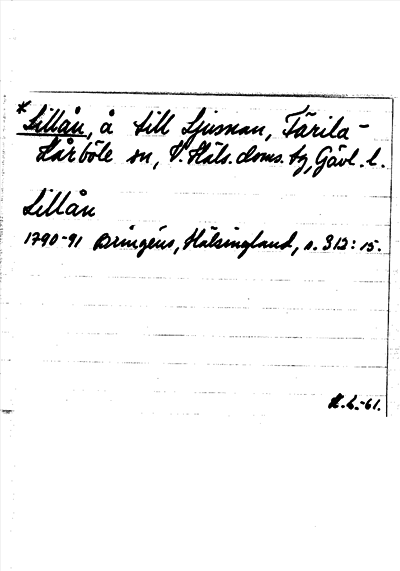 *Lillån, å till Ljusnan, Färila-
Kårböle sn, V. Häls. doms. tg, Gävl. l.
Lillån
1790-91 Bringéus, Hälsingland, s. 312:15.
H.L.-61.